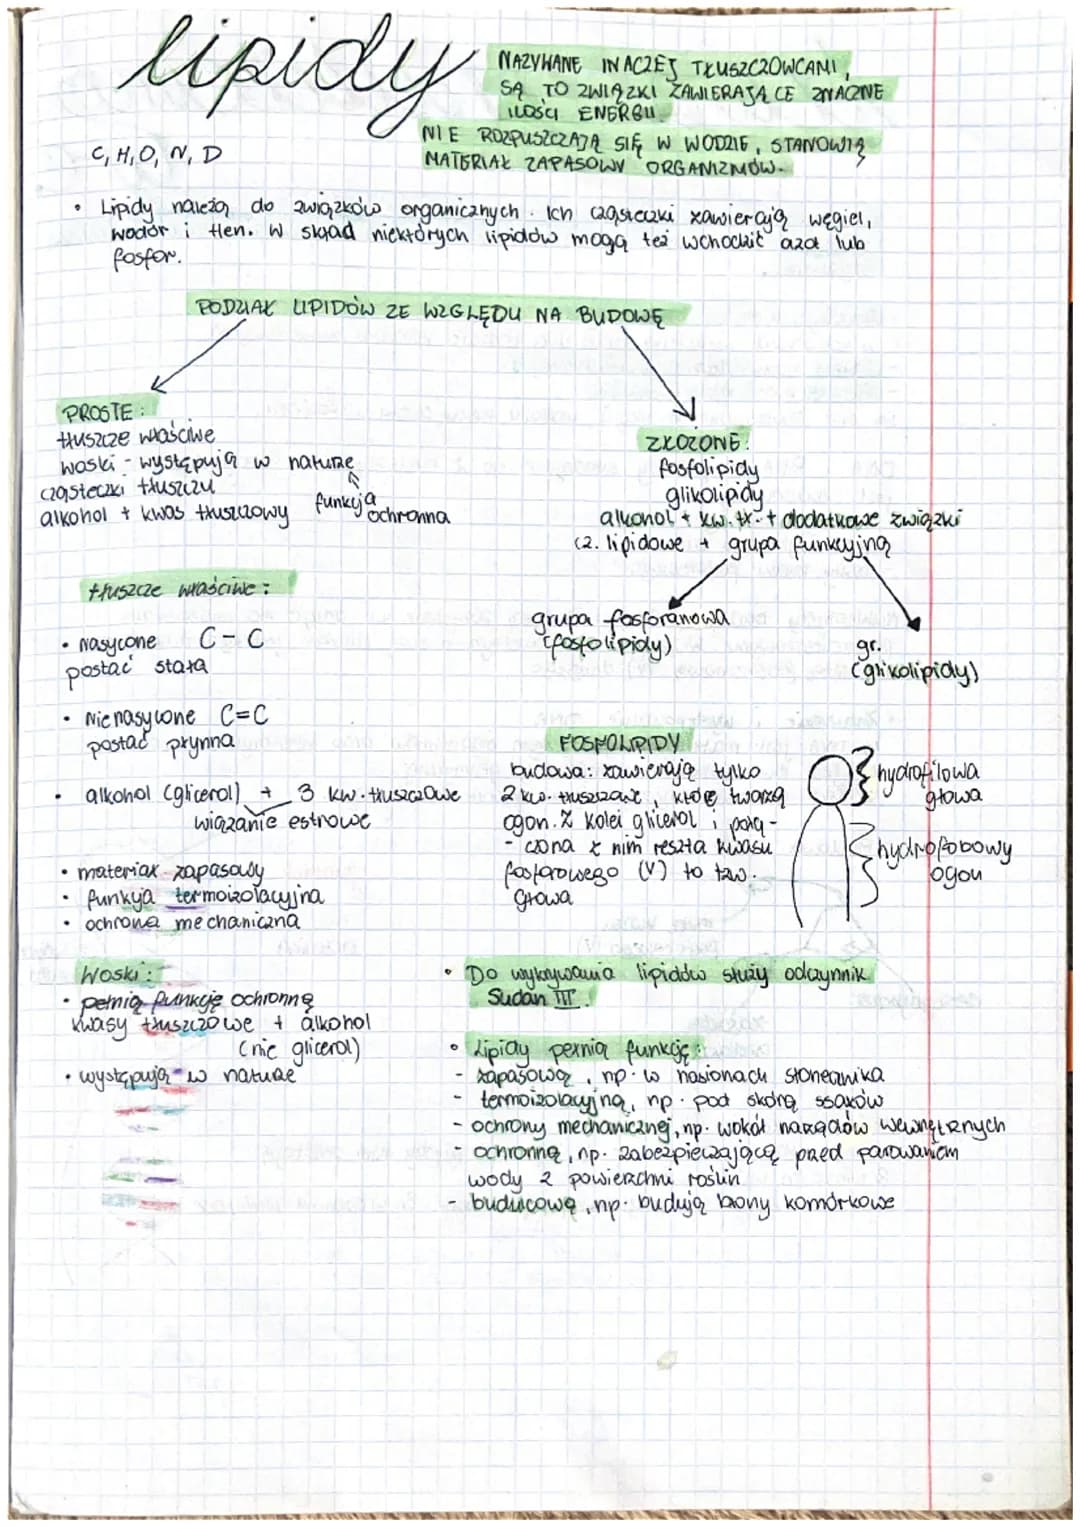 lipidy
NAZYWANE INACZEJ TŁUSZCZOWCAMI,
SĄ TO ZWIĄZKI ZAWIERAJĄCE ZNACZNE
ILOŚCI ENERGII.
NIE ROZPUSZCZAJĄ SIĘ W WODZIE, STANOWIĄ
MATERIAŁ ZAPASOWY ORGANIZMÓW.
C, H, O, N, D
• Lipidy należą do związków organicznych. Ich cząsteczki zawierają węgiel,
wodór i tlen. W skład niektórych lipidów mogą też wchodzić azot lub
fosfor.
PODZIAŁ LIPIDÓW ZE WZGLĘDU NA BUDOWĘ
PROSTE:
tłuszcze właściwe
woski - występują w naturze
cząsteczki tłuszczu
alkohol + kwas tłuszczowy
funkcja
ochronna
ZŁOŻONE:
fosfolipidy
glikolipidy
alkohol + kw. tł. + dodatkowe związki
cz. lipidowe + grupa funkcyjna
grupa fosforanowa
(fosfolipidy)
gr.
(glikolipidy)
tłuszcze właściwe:
• nasycone C - C
postać stała
• nienasycone C=C
postać płynna
• alkohol (glicerol) + 3 kw. tłuszczowe
wiązanie estrowe
• materiał zapasowy
• funkcja termoizolacyjna
• ochrona mechaniczna
FOSFOLIPIDY
budowa: zawierają tylko
2 kw. tłuszczowe, które tworzą
ogon. Z kolei glicerol i połą-
- czona z nim reszta kwasu
fosforowego (V) to tzw.
głowa
hydrofilowa
głowa
hydrofobowy
ogon
Woski:
• pełnią funkcję ochronną
kwasy tłuszczowe + alkohol
(nie glicerol)
• występują w naturze
• Do wykrywania lipidów służy odczynnik
Sudan III.
• Lipidy pełnią funkcję:
- zapasową, np. w nasionach słonecznika
- termoizolacyjną, np. pod skórą ssaków
- ochrony mechanicznej, np. wokół narządów wewnętrznych
- ochronną, np. zabezpieczającą przed parowaniem
wody z powierzchni roślin
- budulcową, np. budują błony komórkowe